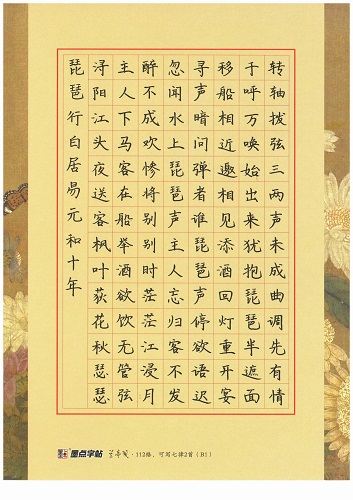 琵琶行白居易元和十年
浔阳江头夜送客枫叶荻花秋瑟瑟
主人下马客在船举酒欲饮无管弦
醉不成欢惨将别别时茫茫江浸月
忽闻水上琵琶声主人忘归客不发
寻声暗问弹者谁琵琶声停欲语迟
移船相近邀相见添酒回灯重开宴
千呼万唤始出来犹抱琵琶半遮面
转轴拨弦三两声未成曲调先有情
墨点字帖 ·112格，可写七律2首（B1）